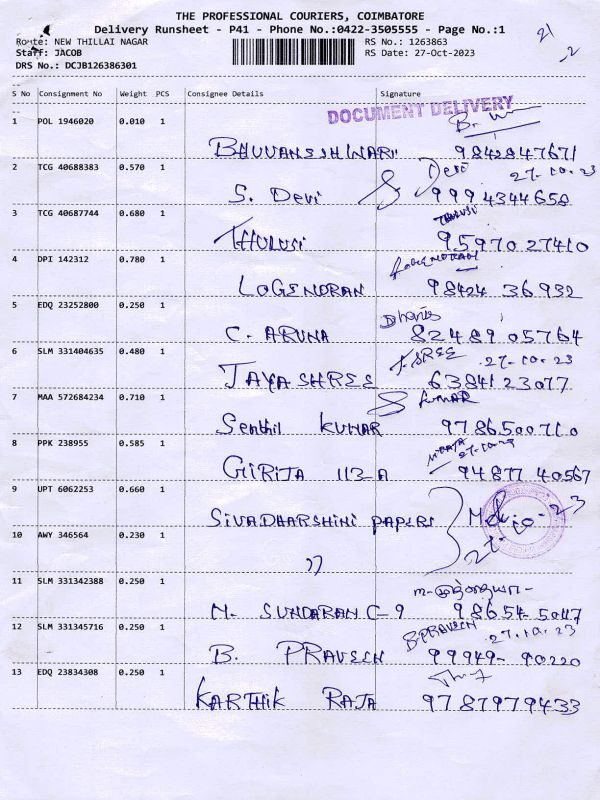 THE PROFESSIONAL COURIERS, COIMBATORE
Delivery Runsheet - P41 - Phone No.:0422-3505555 - Page No.:1
Route: NEW THILLAI NAGAR RS No.: 1263863
Staff: JACOB RS Date: 27-Oct-2023
DRS No.: DCJB126386301
21
-2
S No Consignment No Weight PCS Consignee Details Signature
DOCUMENT DELIVERY
1 POL 1946020 0.010 1
BHUVANESHWARI 9842847671
2 TCG 40688383 0.570 1 Devi 27-10-23
S. Devi 9994344658
3 TCG 40687744 0.680 1 THULUSI
THULUSI 95970 27410
4 DPI 142312 0.780 1 LOGENDRAN
LOGENDRAN 98424 36932
5 EDQ 23252800 0.250 1
C. ARUNA 82489 05764
6 SLM 331404635 0.480 1 J.SREE 27-10-23
JAYA SHREE 6384123077
7 MAA 572684234 0.710 1 KUMAR
Senthil KUMAR 9786500710
8 PPK 238955 0.585 1
GIRIJA 113-A 94877 40567
9 UPT 6062253 0.660 1
SIVADHARSHINI PAPERS 27-10-23
10 AWY 346564 0.230 1
"
11 SLM 331342388 0.250 1
M. SUNDARAN C-9 98654 5047
12 SLM 331345716 0.250 1 B.PRAVEEN 27.10.23
B. PRAVEEN 99949-90220
13 EDQ 23834308 0.250 1
KARTHIK RAJA 9787979433